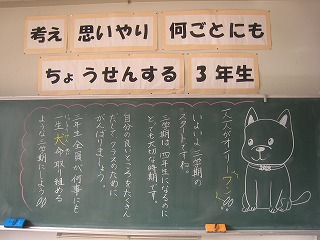 考え 思いやり 何ごとにも
ちょうせんする 3年生
大人がオンリーワン
いよいよ三学期の
スタートですね。
三学期は、四年生になるのに
とても大切な時期です。
自分の良いところをたくさん
だしてクラスのために
がんばりましょう。
三年生全員が何事にも
一生犬命取り組める
ような三学期にしよう